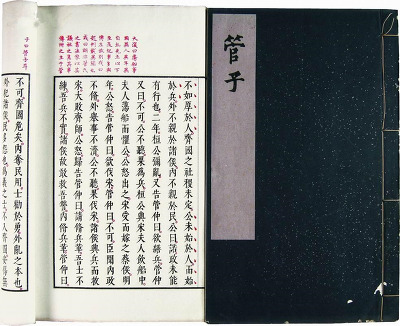 管子
不如厚於人齊國之社稷未定公未始於人而始
於兵外不親於諸侯內不親於民公曰諾政未能
有行也二年桓公彌亂又告管仲曰欲繕兵管仲
又曰不可公不聽果為兵桓公與宋夫人飲船中
夫人蕩船而懼公公怒出之宋受而嫁之蔡侯明
年公怒告管仲曰欲伐宋管仲曰不可臣聞內政
不脩外舉事不濟公不聽果伐宋諸侯興兵而救
宋大敗齊師公怒歸告管仲曰請脩兵革吾士不
練吾兵不實諸侯故敢救吾讎內脩兵革管仲曰
不可齊國危矣內奪民用士勸於勇外亂之本也
外犯諸侯民多怨也為義之士不入齊國安得無